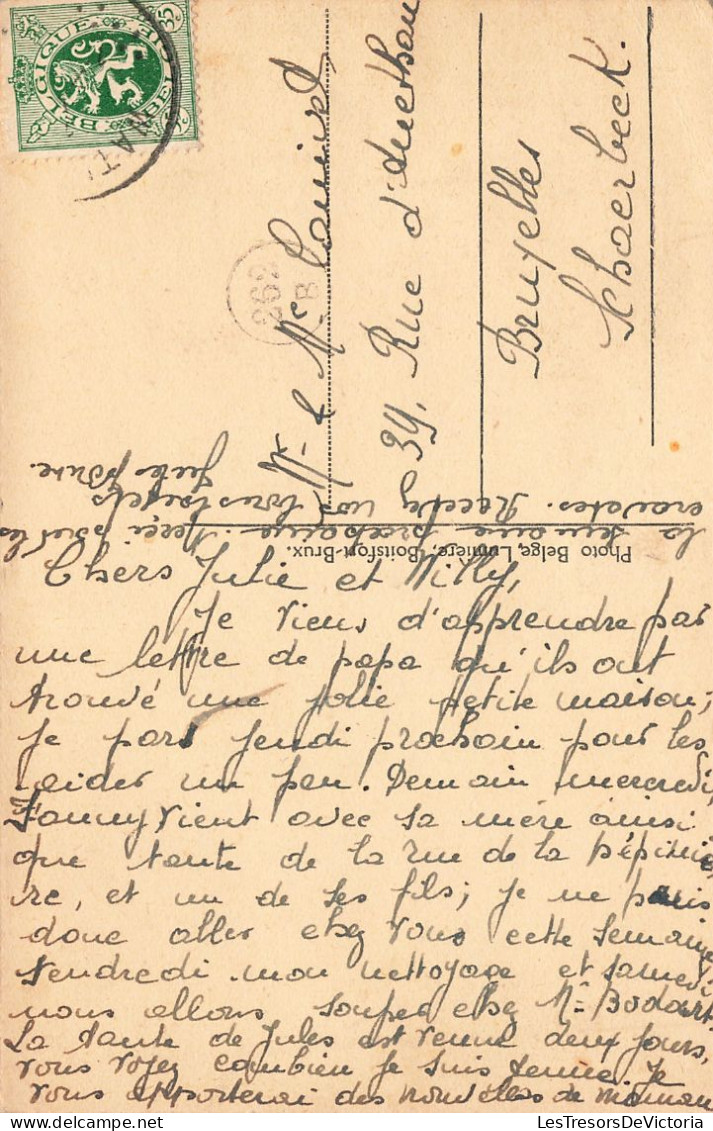 Chers Julie et Willy,
Je viens d'apprendre par
une lettre de papa qu'ils ont
trouvé une jolie petite maison;
je pars jeudi prochain pour les
aider un peu. Demain mercredi,
Fanny vient avec sa mère ainsi
que tante de la rue de la Pépiniè
re, et un de ses fils; je ne puis
donc aller chez vous cette semaine
vendredi mon nettoyage et samedi
nous allons souper chez Mme Bodart.
La tante de Jules est venue deux jours,
vous voyez combien je suis tenue. Je
vous apporterai des nouvelles de maman
la semaine prochaine. Merci pour les
cravates. Recevez nos bons baisers
Jules
Mr & Me
39, Rue d'Anethan
Bruxelles
Schaerbeck.
Photo Belge Lumière, Boitsfort-Brux.
BELGIQUE
BELGIE
35
262
B
NAT
LesTresorsDeVictoria